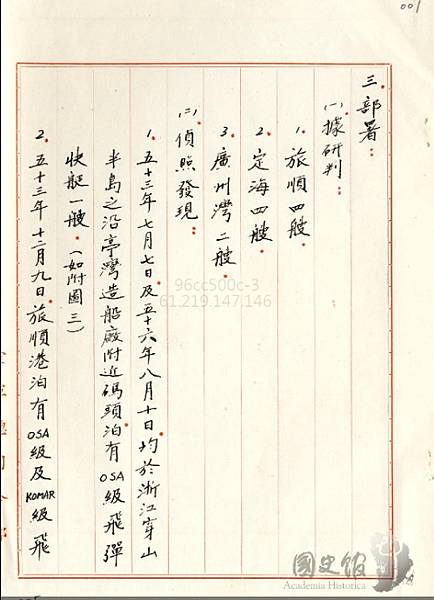 001
三、部署：
(一)據研判：
1. 旅順四艘。
2. 定海四艘。
3. 廣州灣二艘。
(二)偵照發現：
1. 五十三年七月七日及五十六年八月十日均於浙江穿山
半島之沿亭灣造船廠附近碼頭泊有OSA級飛彈
快艇一艘。(如附圖三)
2. 五十三年十二月九日旅順港泊有OSA級及KOMAR級飛
96cc500c-3
61.219.147.146
國史館
Academia Historica